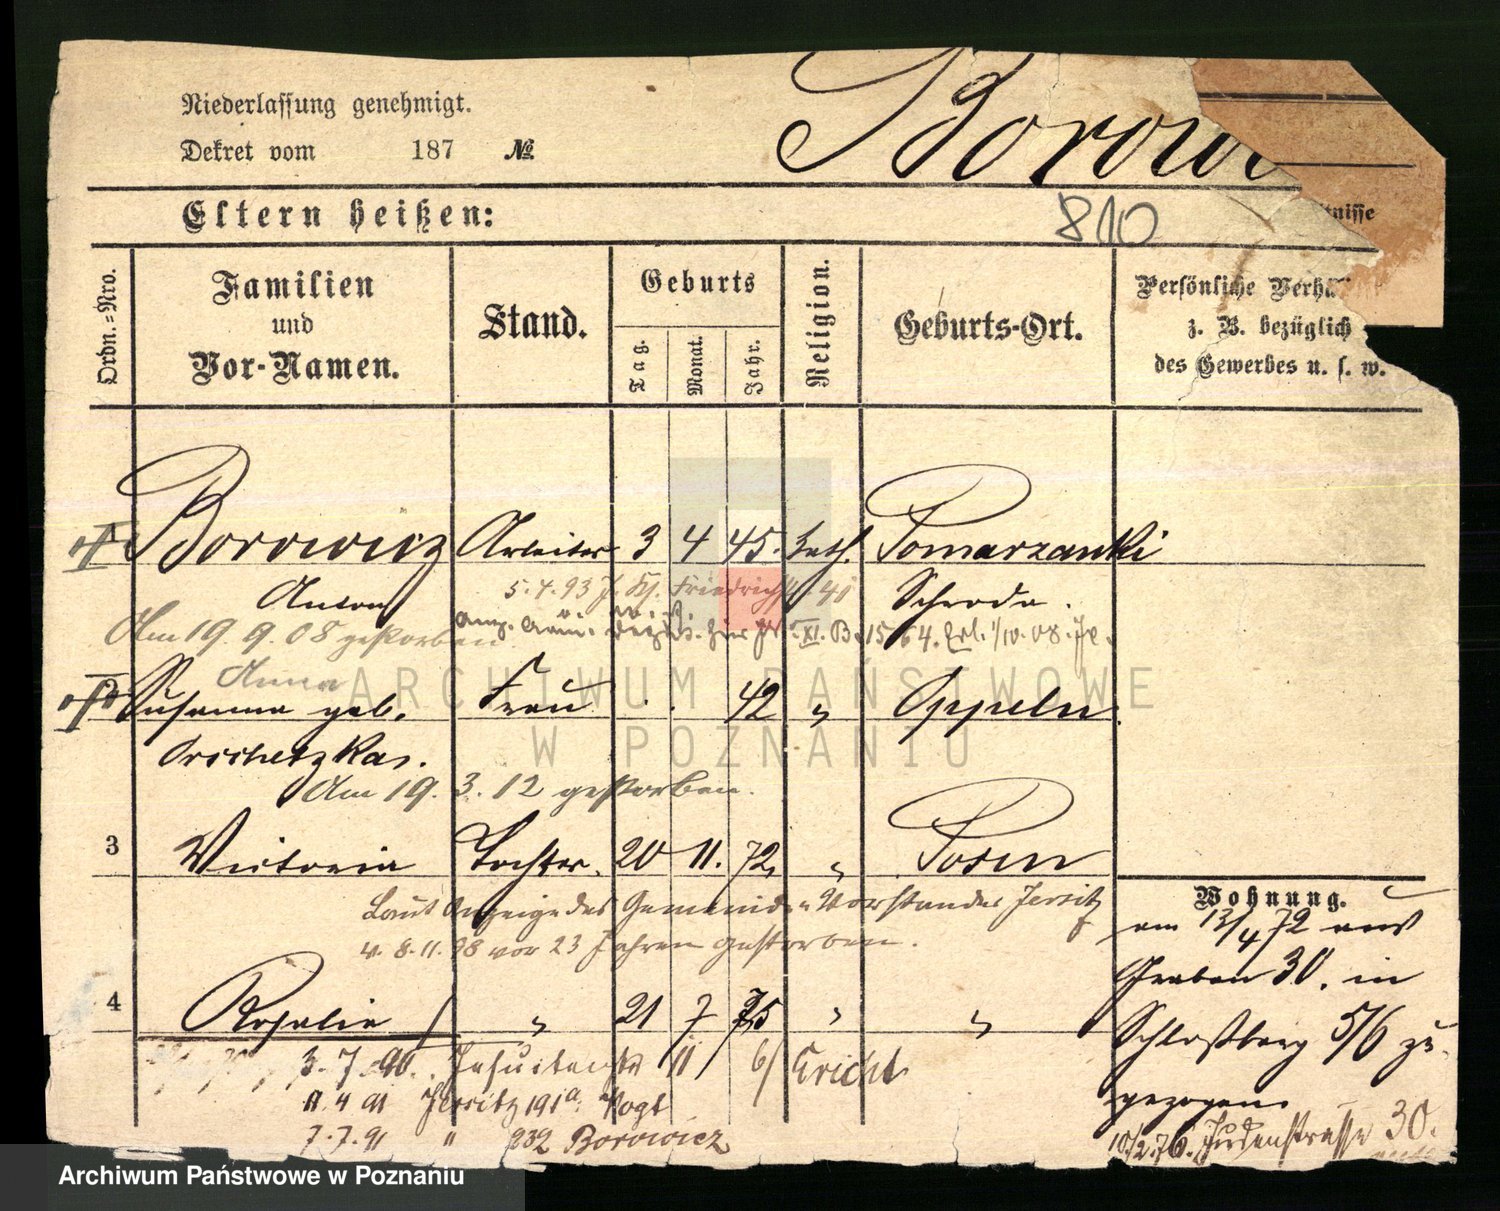 Niederlassung genehmigt.
Dekret vom 187 №
Borow
Eltern heißen:
810
tnisse
Ordn.-Nro.
Familien
und
Vor-Namen.
Stand.
Geburts
Tag.
Monat.
Jahr.
Religion.
Geburts-Ort.
Persönliche Verhä
z. B. bezüglich
des Gewerbes u. s. w.
Borowicz Arbeiter 3 4 45. kath. Pomarzanki
Anton
5.4.93 Friedrich
Schroda.
Am 19. 9. 08 gestorben.
15 64. Erl.
Anna
Susanna geb. Frau 42 " Oppeln
Am 19. 3. 12 gestorben.
3 Victoria Tochter. 20 11. 72 " Posen
Laut Anzeige des Gemeinde-Vorstandes Jersitz
v. 8.11.98 vor 23 Jahren gestorben.
4 Rosalie " 21 7 75 " "
3.7.90. Jesuitenstr 11 Ericht
11.4 91 Jersitz 191a. Vogt
7.7.91 " 232 Borowicz
Wohnung.
am 13/4 72 aus
Graben 30. in
Schloßberg 5/6 zu-
gezogen.
10/2.76. Judenstrasse 30.
ARCHIWUM PAŃSTWOWE
W POZNANIU
Archiwum Państwowe w Poznaniu